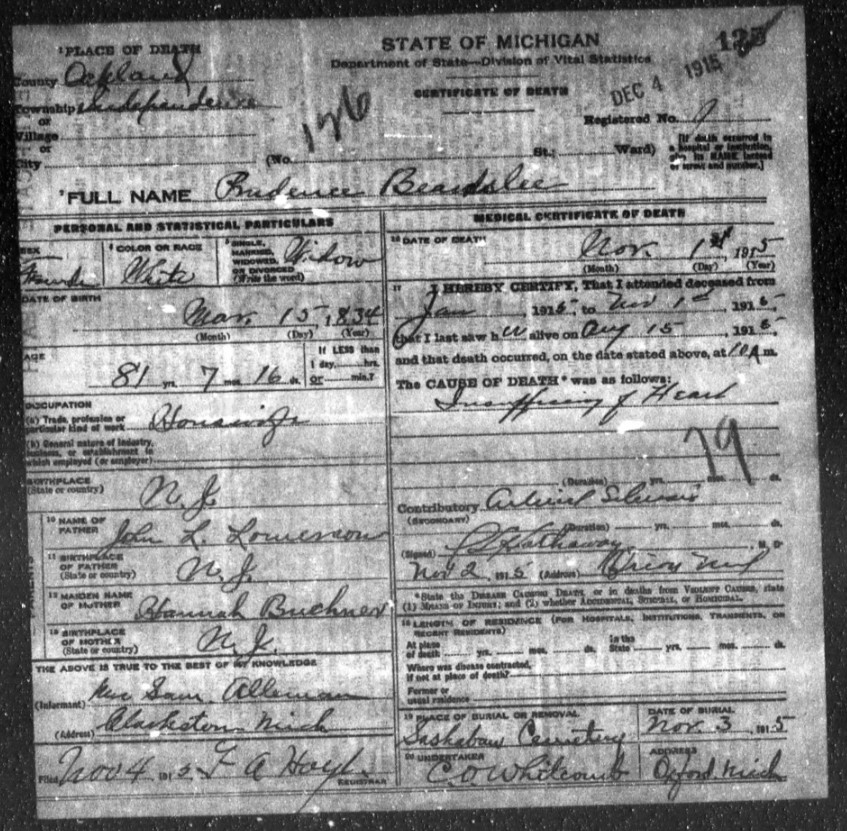 135
STATE OF MICHIGAN
Department of State—Division of Vital Statistics
CERTIFICATE OF DEATH
DEC 4 1915
126
Registered No. 7
1 PLACE OF DEATH
County Oakland
Township Independence
or
Village
or
City
(No. St.; Ward)
[If death occurred in
a hospital or institution,
give its NAME instead
of street and number.]
2 FULL NAME Prudence Beardslee
PERSONAL AND STATISTICAL PARTICULARS
SEX
Female
4 COLOR OR RACE
White
5 SINGLE,
MARRIED,
WIDOWED,
OR DIVORCED
(Write the word)
Widow
DATE OF BIRTH
Mar. 15, 1834
(Month) (Day) (Year)
AGE
81 yrs. 7 mos. 16 ds.
If LESS than
1 day, hrs.
or min.?
OCCUPATION
(a) Trade, profession or
particular kind of work Housewife
(b) General nature of industry,
business, or establishment in
which employed (or employer)
BIRTHPLACE
(State or country)
N. J.
10 NAME OF
FATHER
John L. Lowerson
11 BIRTHPLACE
OF FATHER
(State or country)
N. J.
12 MAIDEN NAME
OF MOTHER
Hannah Buchner
13 BIRTHPLACE
OF MOTHER
(State or country)
N. J.
THE ABOVE IS TRUE TO THE BEST OF MY KNOWLEDGE
(Informant) Mrs Sam. Alleman
(Address) Clarkston Mich
Filed Nov 4 1915 F A Hoyt
REGISTRAR
MEDICAL CERTIFICATE OF DEATH
16 DATE OF DEATH
Nov. 1st, 1915
(Month) (Day) (Year)
17 I HEREBY CERTIFY, That I attended deceased from
Jan 1915, to Nov 1st 1915,
that I last saw her alive on Aug 15, 1915,
and that death occurred, on the date stated above, at 10 A m.
The CAUSE OF DEATH* was as follows:
of Heart
79
(Duration) yrs. mos. ds.
Contributory
(SECONDARY)
(Duration) yrs. mos. ds.
(Signed) Hathaway, M. D.
Nov 2 1915 (Address) Orion Mich
*State the DISEASE CAUSING DEATH, or in deaths from VIOLENT CAUSES, state
(1) MEANS OF INJURY; and (2) whether ACCIDENTAL, SUICIDAL, or HOMICIDAL.
18 LENGTH OF RESIDENCE (FOR HOSPITALS, INSTITUTIONS, TRANSIENTS, OR
RECENT RESIDENTS)
At place
of death yrs. mos. ds.
In the
State yrs. mos. ds.
Where was disease contracted,
if not at place of death?
Former or
usual residence
19 PLACE OF BURIAL OR REMOVAL
Sashabaw Cemetery
DATE OF BURIAL
Nov. 3, 1915
20 UNDERTAKER
C. O. Whitcomb
ADDRESS
Oxford, Mich